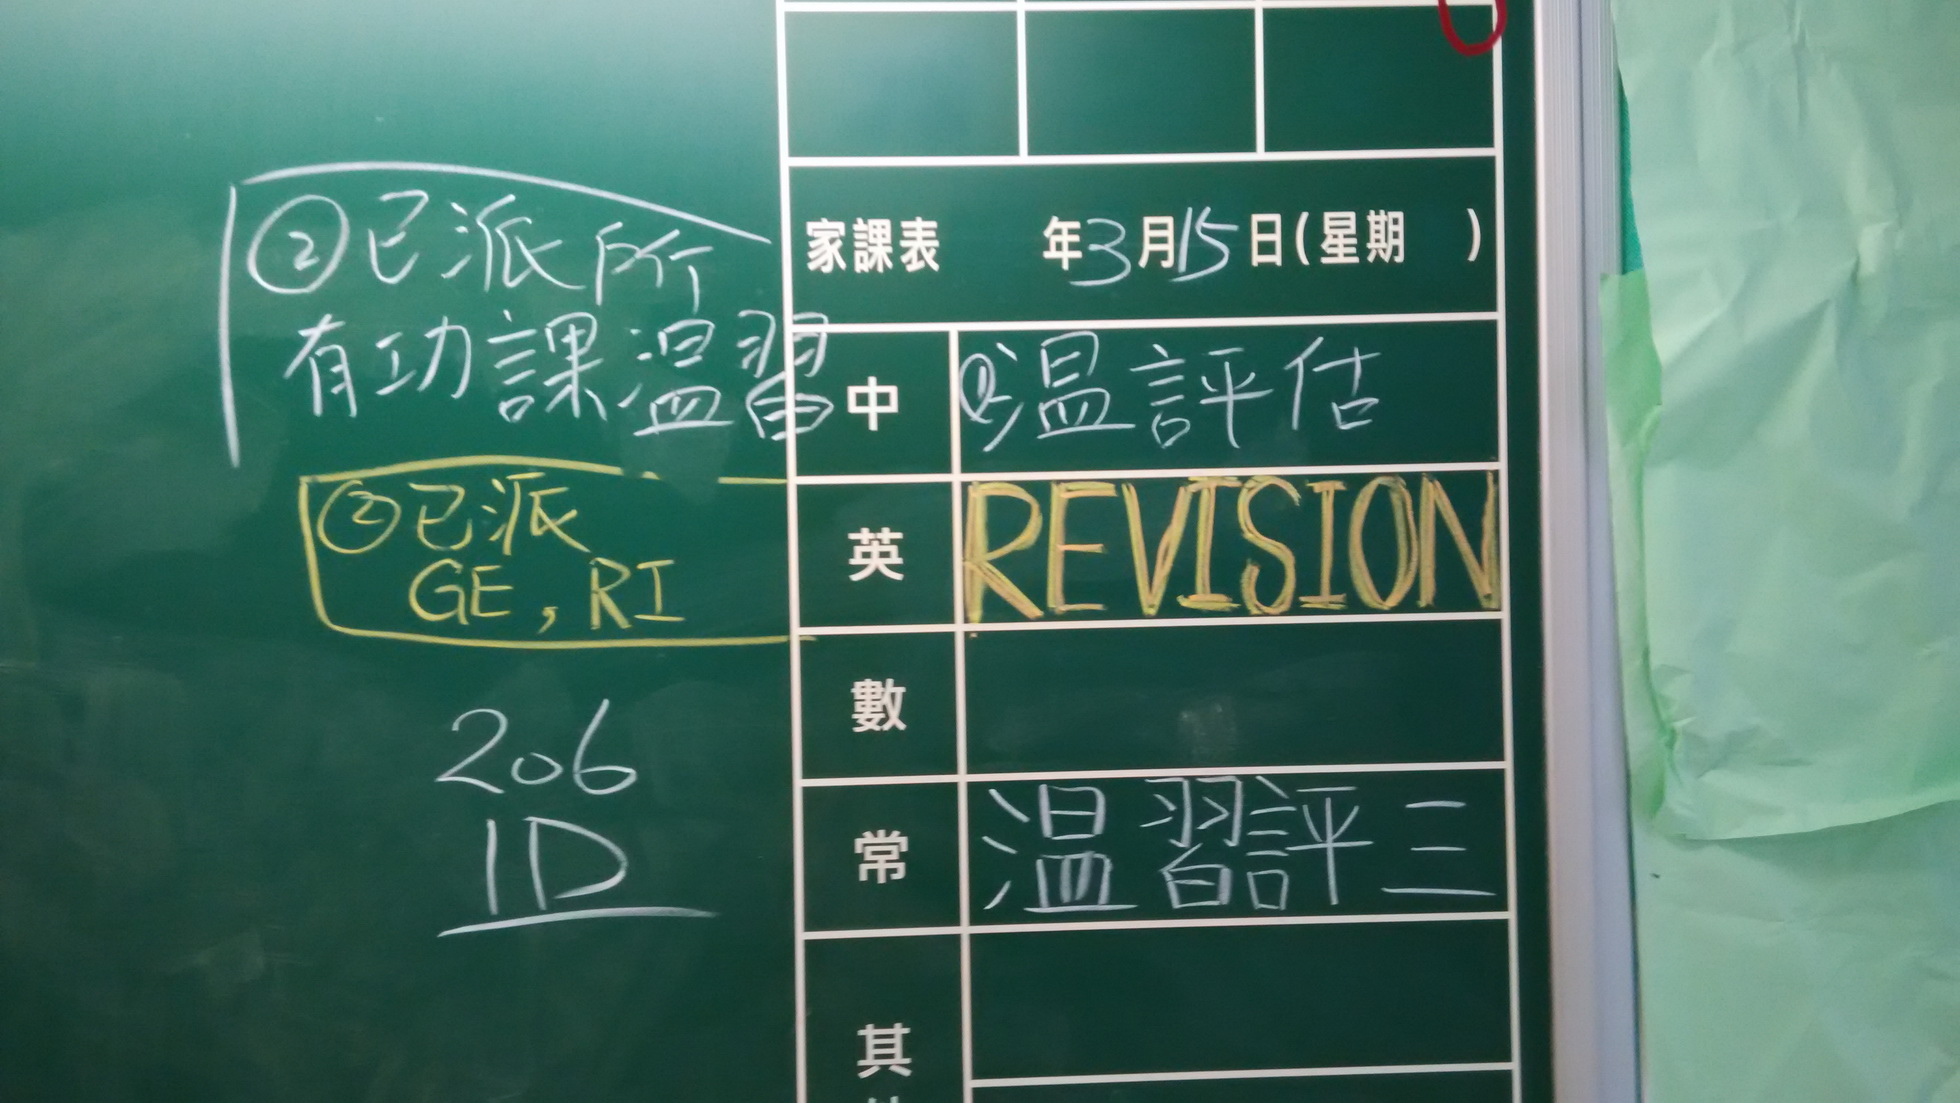 家課表 年3月15日(星期 )
②已派所
有功課溫習
中 ①溫評估
②已派
GE, RI
英 REVISION
數
206
1D
常 溫習評三
其